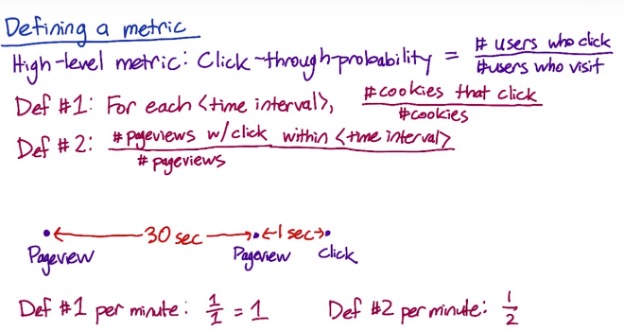 Defining a metric
High-level metric: Click-through-probability = # users who click / # users who visit
Def #1: For each <time interval>, #cookies that click / #cookies
Def #2: #pageviews w/click within <time interval> / # pageviews
30 sec 1 sec
Pageview Pageview Click
Def #1 per minute: 1/1 = 1 Def #2 per minute: 1/2